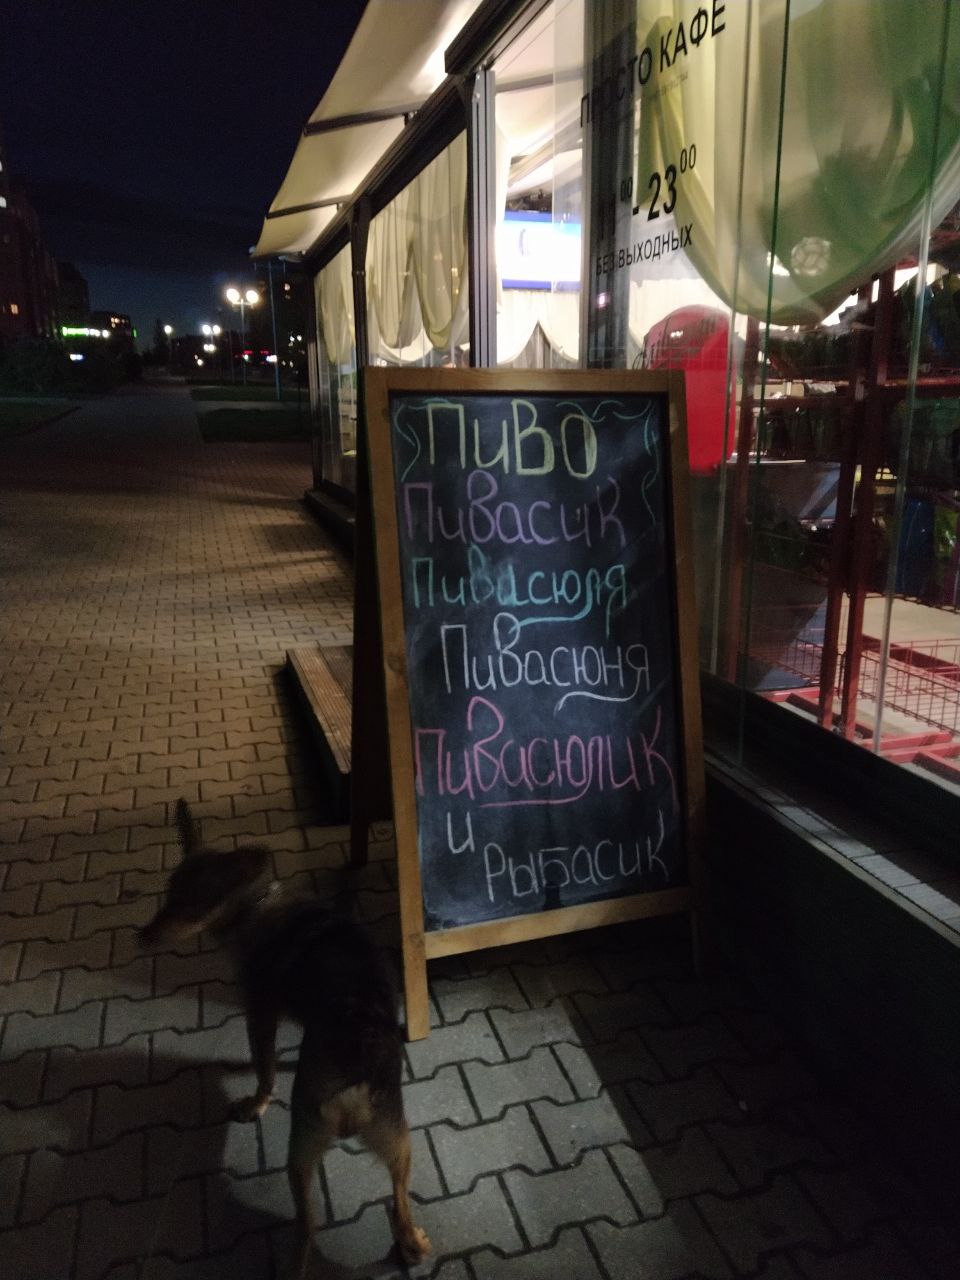 ПРОСТО КАФЕ
00 - 23 00
БЕЗ ВЫХОДНЫХ
Пиво
Пивасик
Пивасюля
Пивасюня
Пивасюлик
и
Рыбасик